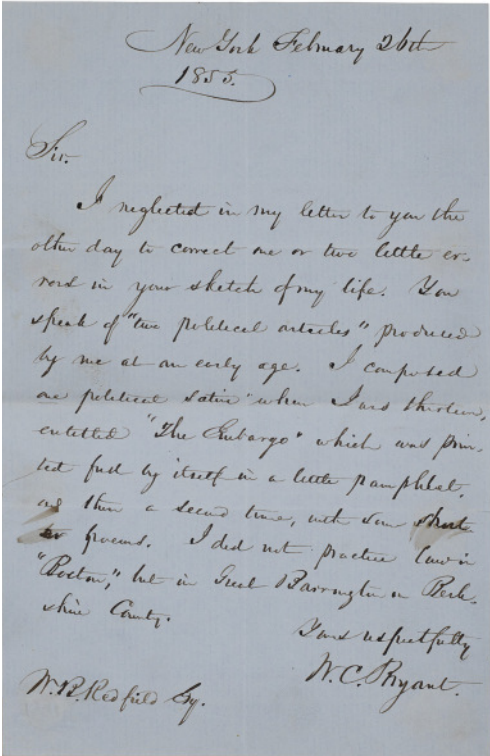 New York February 26th
1855.
Sir.
I neglected in my letter to you the
other day to correct one or two little er-
rors in your sketch of my life. You
speak of "two political articles" produced
by me at an early age. I composed
one political satire when I was thirteen,
entitled "The Embargo" which was prin-
ted first by itself in a little pamphlet,
and then a second time, with some short
poems. I did not practice law in
"Boston," but in Great Barrington in Berk-
shire County.
Yours respectfully
W. C. Bryant.
W. B. Redfield Esq.